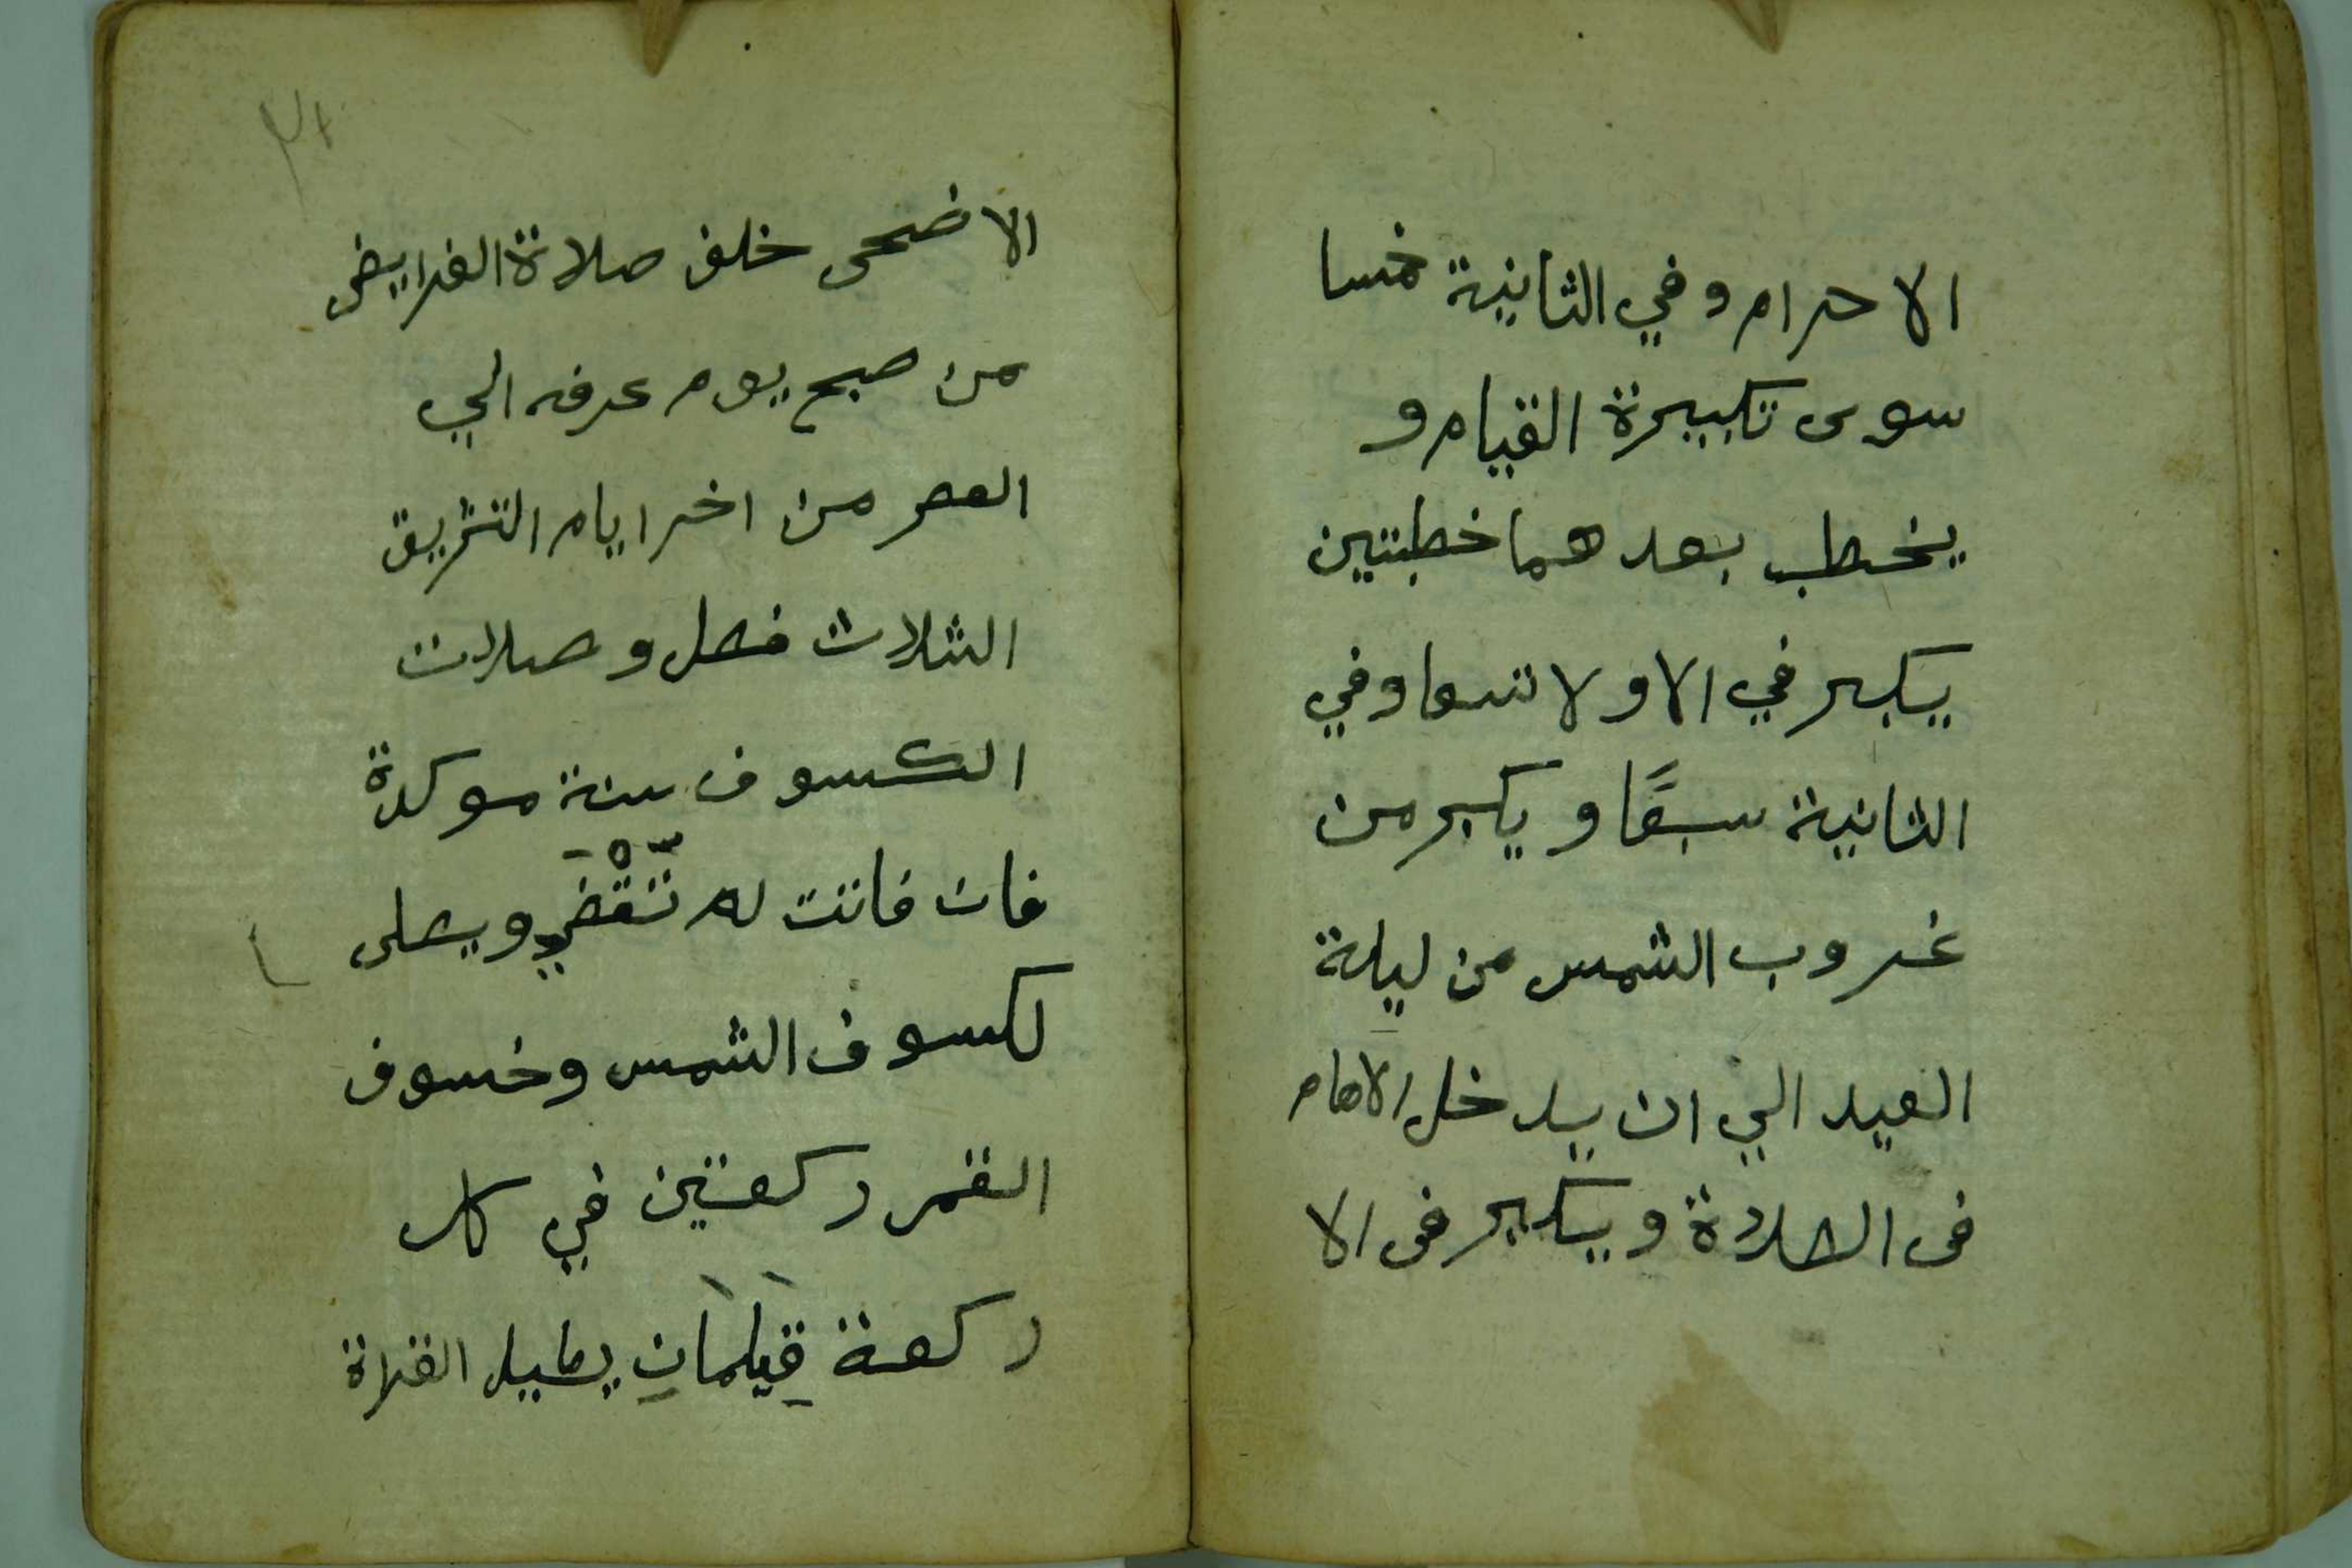 الاحرام وفي الثانية خمسا
سوى تكبيرة القيام و
يخطب بعدهما خطبتين
يكبر في الاولا تسعا وفي
الثانية سبعًا ويكبر من
غروب الشمس من ليلة
العيد الي ان يدخل الامام
فى الصلاة ويكبر فى الا
الاضحى خلف صلاة الفرايض
من صبح يوم عرفه الي
العصر من اخر ايام التشريق
الثلاث فصل وصلات
الكسوف سنة موكدة
فان فاتت لم تَقْضَي ويصلى
لكسوف الشمس وخسوف
القمر ركعتين في كل
ركعة قِيَامَانِ يطيل القراة